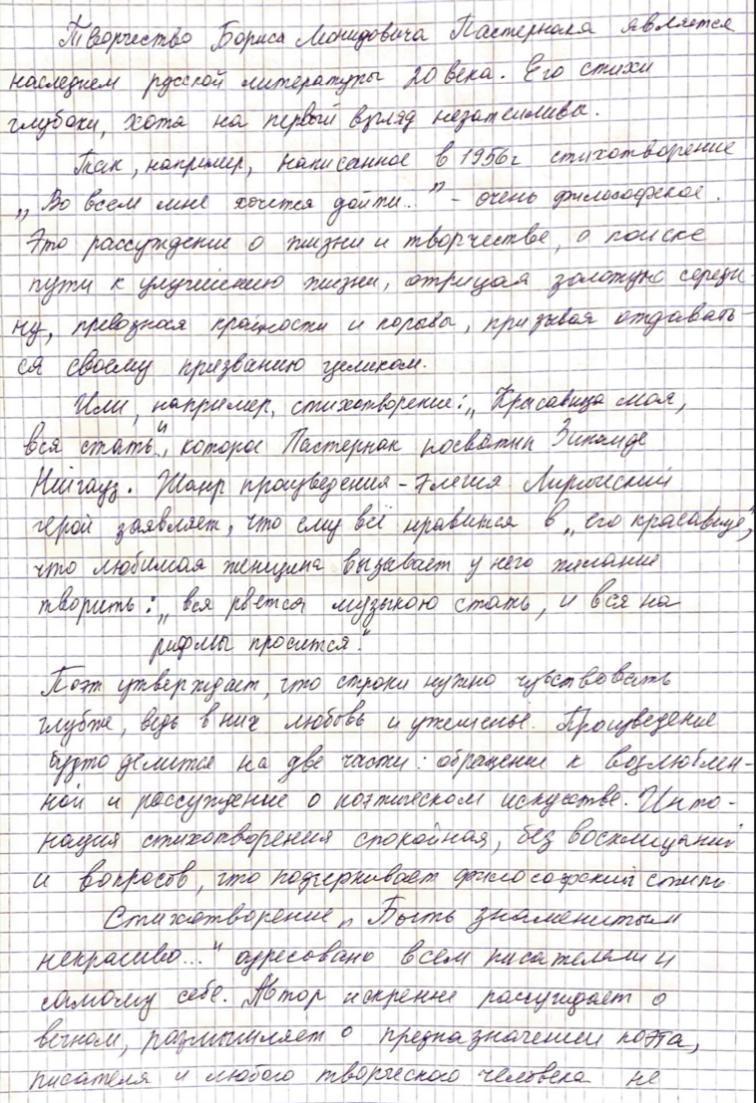 Творчество Бориса Леонидовича Пастернака является
наследием русской литературы 20 века. Его стихи
глубоки, хотя на первый взгляд незатейливы.
Так, например, написанное в 1956г стихотворение
„Во всем мне хочется дойти..." - очень философское.
Это рассуждение о жизни и творчестве, о поиске
пути к улучшению жизни, отрицая золотую середи
ну, превознося крайности и порывы, призывая отдавать-
ся своему призванию целиком.
Или, например, стихотворение: „Красавица моя,
вся стать", которое Пастернак посвятил Зинаиде
Нейгауз. Жанр произведения - элегия Лирический
герой заявляет, что ему всё нравится в „его красавице",
что любимая женщина вызывает у него желание
творить: „вся рвется музыкою стать, и вся на
рифмы просится."
Поэт утверждает, что строки нужно чувствовать
глубже, ведь в них любовь и утешенье. Произведение
будто делится на две части: обращение к возлюблен-
ной и рассуждение о поэтическом искусстве. Инто-
нация стихотворения спокойная, без восклицаний
и вопросов, что подчеркивает философский стиль
Стихотворение „Быть знаменитым
некрасиво..." адресовано всем писателям и
самому себе. Автор искренне рассуждает о
вечном, размышляет о предназначении поэта,
писателя и любого творческого человека не